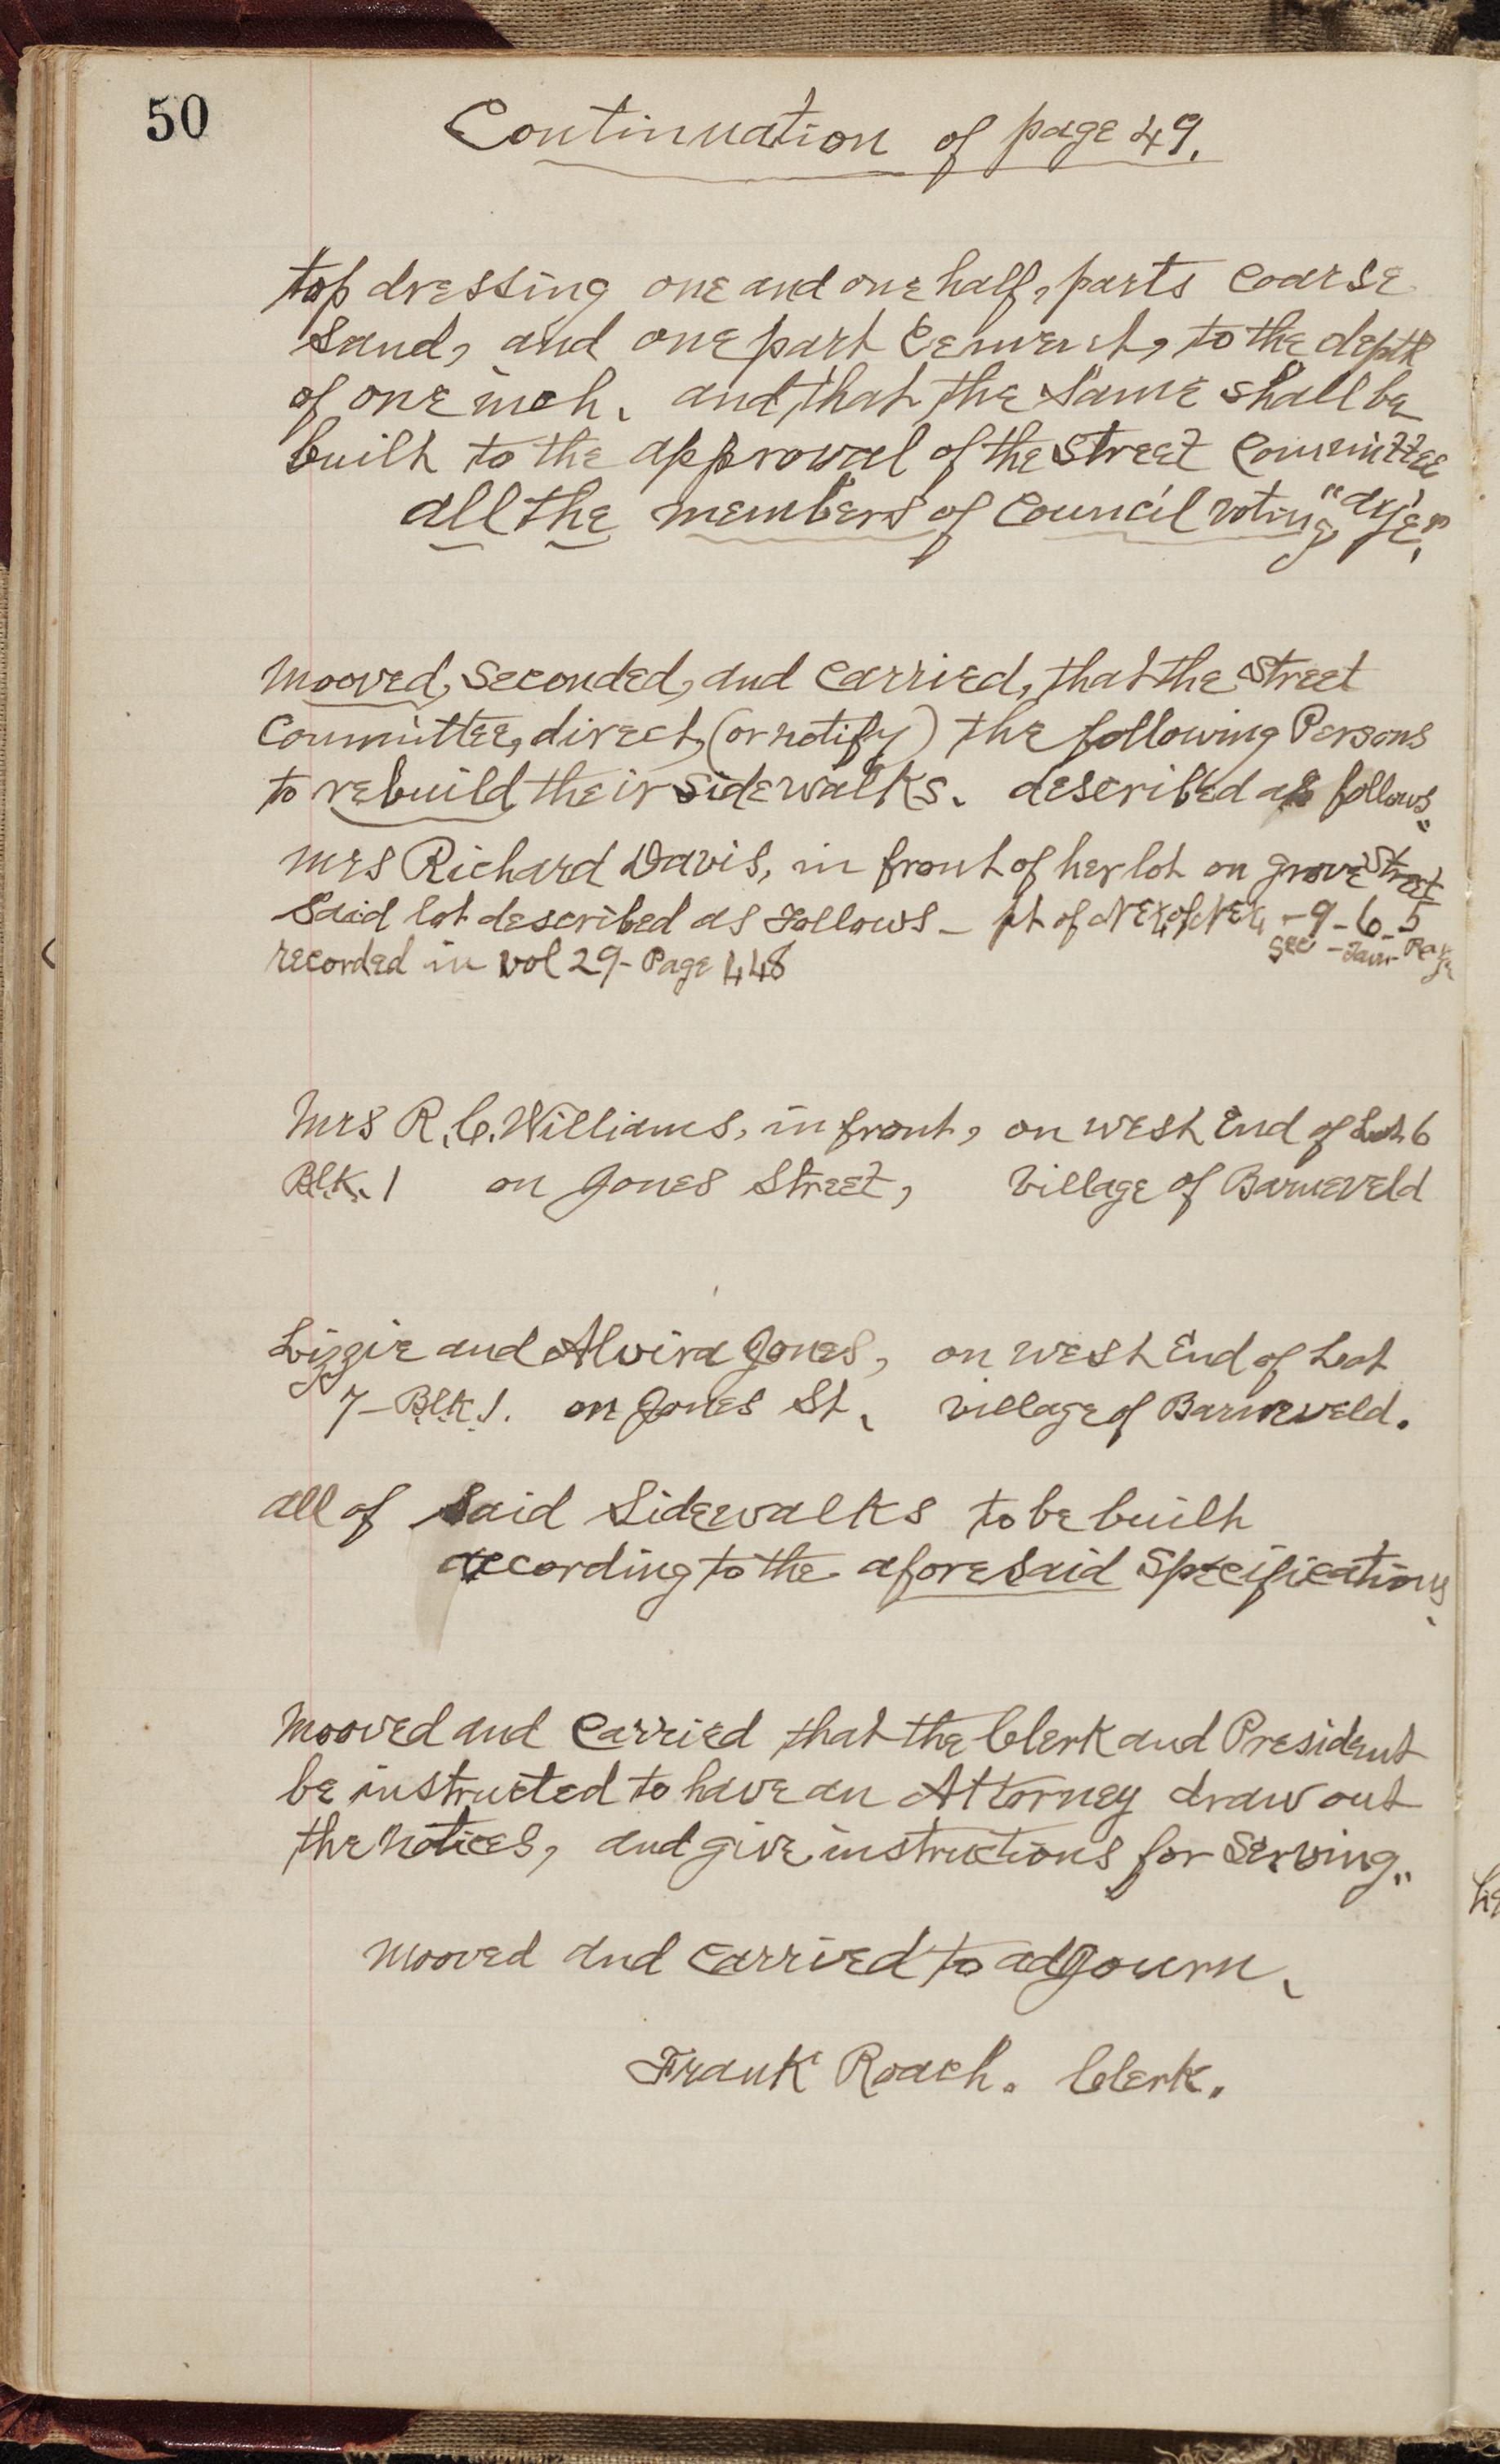 50
Continuation of page 49.
top dressing one and one half, parts coarse
sand, and one part cement, to the depth
of one inch. and that the same shall be
built to the approval of the street committee
all the members of council voting "aye".
Mooved, seconded, and carried, that the street
committee, direct, (or notify) the following Persons
to rebuild their sidewalks. described as follows.
Mrs Richard Davis, in front of her lot on grove street
said lot described as follows - pt of NE¼ of NE¼ - 9 - 6 - 5
Sec - Town - Range
recorded in vol 29 - Page 448
Mrs R. C. Williams, in front, on west End of Lot 6
Blk. 1 on Jones Street, village of Barneveld
Lizzie and Alvira Jones, on west End of Lot
7 - Blk 1. on Jones St. village of Barneveld.
all of said sidewalks to be built
according to the aforesaid specifications.
Mooved and carried that the Clerk and President
be instructed to have an Attorney draw out
the notices, and give instructions for serving.
Mooved and carried to adjourn.
Frank Roach. Clerk.